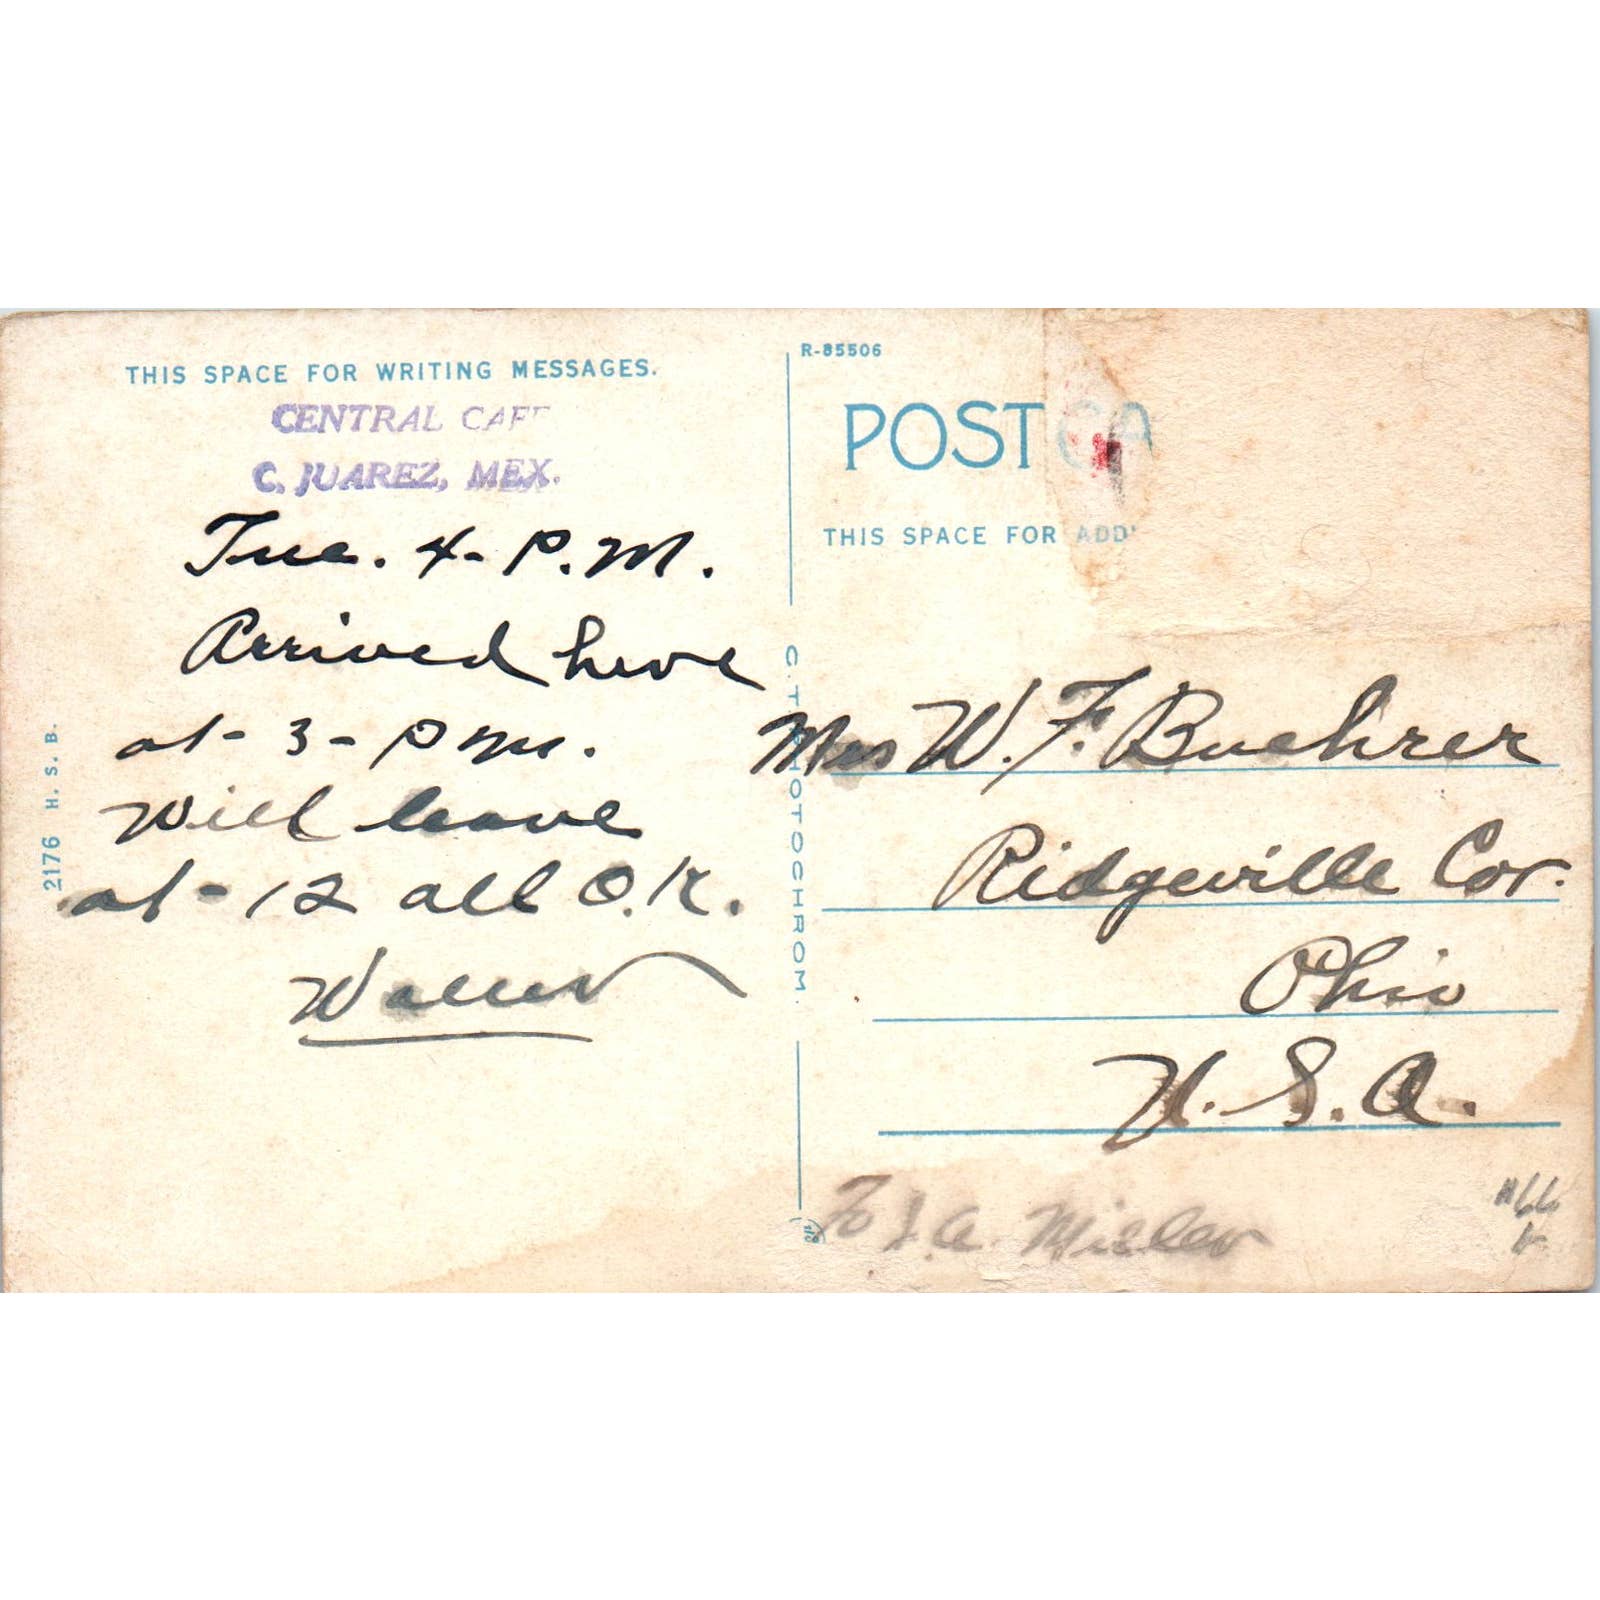 THIS SPACE FOR WRITING MESSAGES.
CENTRAL CAFE
C. JUAREZ, MEX.
Tue. 4- P.M.
Arrived here
at - 3 - P m.
Will leave
at - 12 all O.K.
Walter
2176 H. S. B.
C. T. PHOTOCHROM.
R-85506
POST CA
THIS SPACE FOR ADD
Mrs W. F. Buehrer
Ridgeville Cor.
Ohio
U.S.A.
To